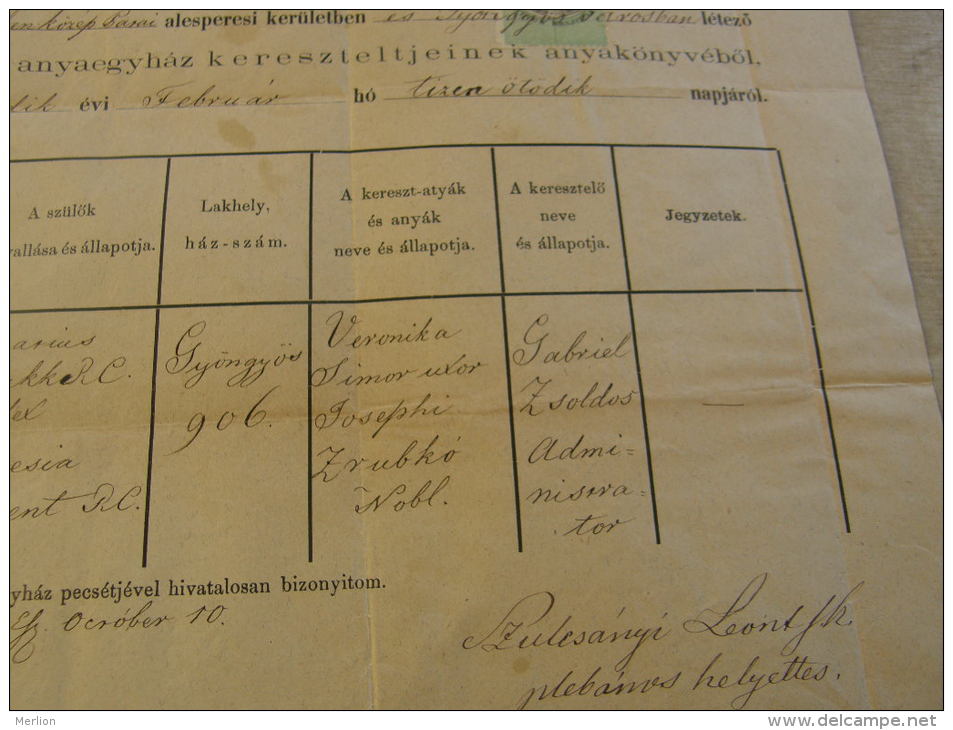 alesperesi kerületben és Gyöngyös városban létező
anyaegyház kereszteltjeinek anyakönyvéből,
dik évi Február hó tizen ötödik napjáról.
A szülők
vallása és állapotja.
Lakhely,
ház-szám.
A kereszt-atyák
és anyák
neve és állapotja.
A keresztelő
neve
és állapotja.
Jegyzetek.
arius
akk R.C.
esia
ent R.C.
Gyöngyös
906.
Veronika
Simor uxor
Josephi
Zrubkó
Nobl.
Gabriel
Zsoldos
Admi=
nistra=
tor
—
yház pecsétjével hivatalosan bizonyitom.
October 10.
Szulcsányi Leont sk.
plebános helyettes.
Merlion
www.delcampe.net